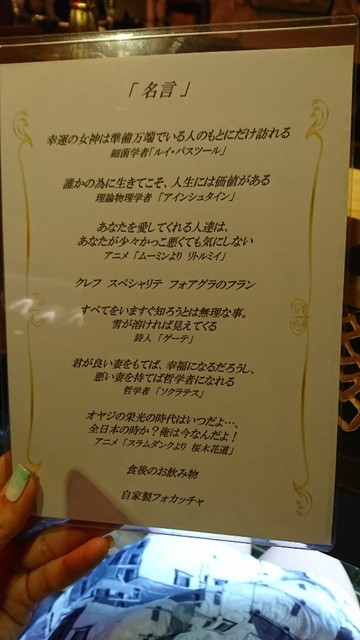 「名言」
幸運の女神は準備万端でいる人のもとにだけ訪れる
細菌学者「ルイ・パスツール」
誰かの為に生きてこそ、人生には価値がある
理論物理学者 「アインシュタイン」
あなたを愛してくれる人達は、
あなたが少々かっこ悪くても気にしない
アニメ 「ムーミンより リトルミイ」
クレフ スペシャリテ フォアグラのフラン
すべてをいますぐ知ろうとは無理な事。
雪が溶ければ見えてくる
詩人 「ゲーテ」
君が良い妻をもてば、幸福になるだろうし、
悪い妻を持てば哲学者になれる
哲学者 「ソクラテス」
オヤジの栄光の時代はいつだよ…、
全日本の時か？俺は今なんだよ！
アニメ 「スラムダンクより 桜木花道」
食後のお飲み物
自家製フォカッチャ